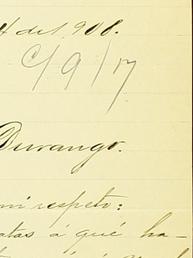 del 908.
C/9/17
Durango.
mi respeto:
atas á qué ha-